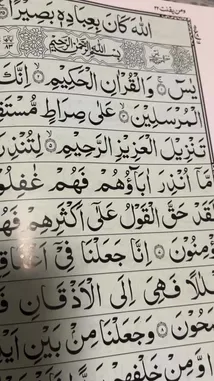 ومن يقنت ٢٢
اللهَ كَانَ بِعِبَادِهٖ بَصِيْرًا
بِسْمِ اللهِ الرَّحْمٰنِ الرَّحِيْمِ
يٰسٓ ۚ وَالْقُرْاٰنِ الْحَكِيْمِ ۙ اِنَّكَ
الْمُرْسَلِيْنَ ۙ عَلٰى صِرَاطٍ
تَنْزِيْلَ الْعَزِيْزِ الرَّحِيْمِ ۙ لِتُنْذِرَ
مَّاۤ اُنْذِرَ اٰبَآؤُهُمْ فَهُمْ
لَقَدْ حَقَّ الْقَوْلُ عَلٰۤى اَكْثَرِهِمْ
اِنَّا جَعَلْنَا فِيْۤ
فَهِيَ اِلَى الْاَذْقَانِ
وَجَعَلْنَا مِنْۢ بَيْنِ
وَّمِنْ